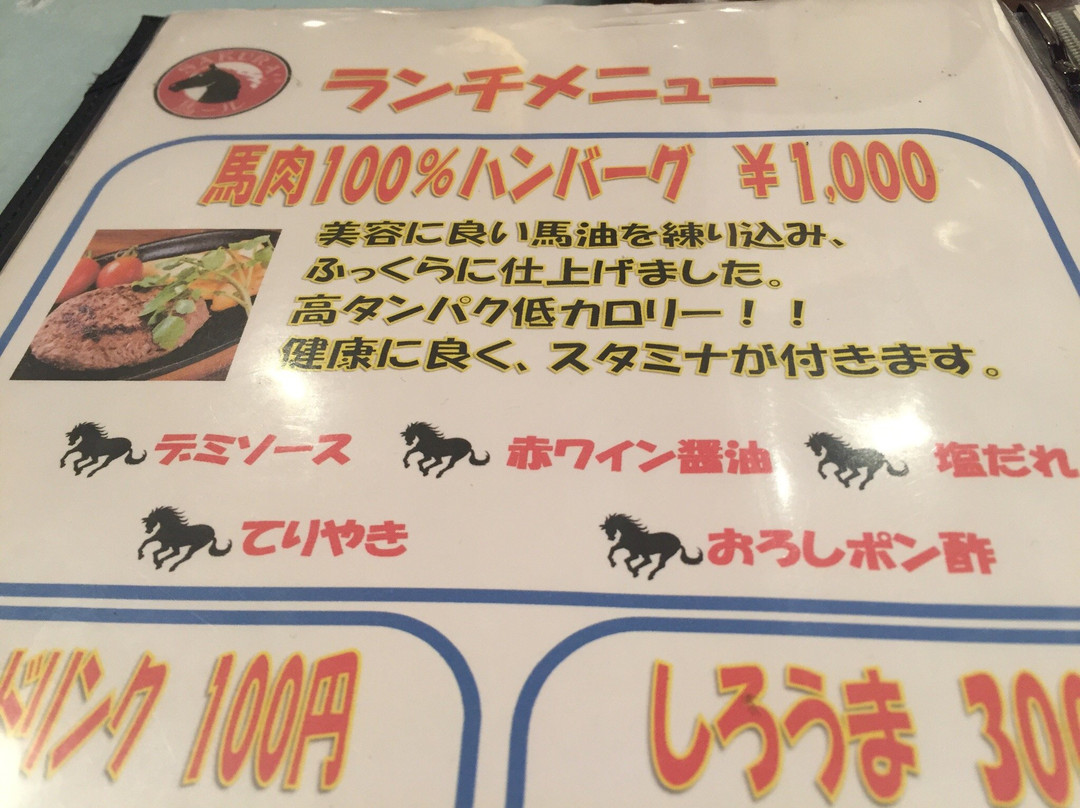 SAKURA
ランチメニュー
馬肉100%ハンバーグ ￥1,000
美容に良い馬油を練り込み、
ふっくらに仕上げました。
高タンパク低カロリー！！
健康に良く、スタミナが付きます。
デミソース 赤ワイン醤油 塩だれ
てりやき おろしポン酢
ドリンク 100円 しろうま 300